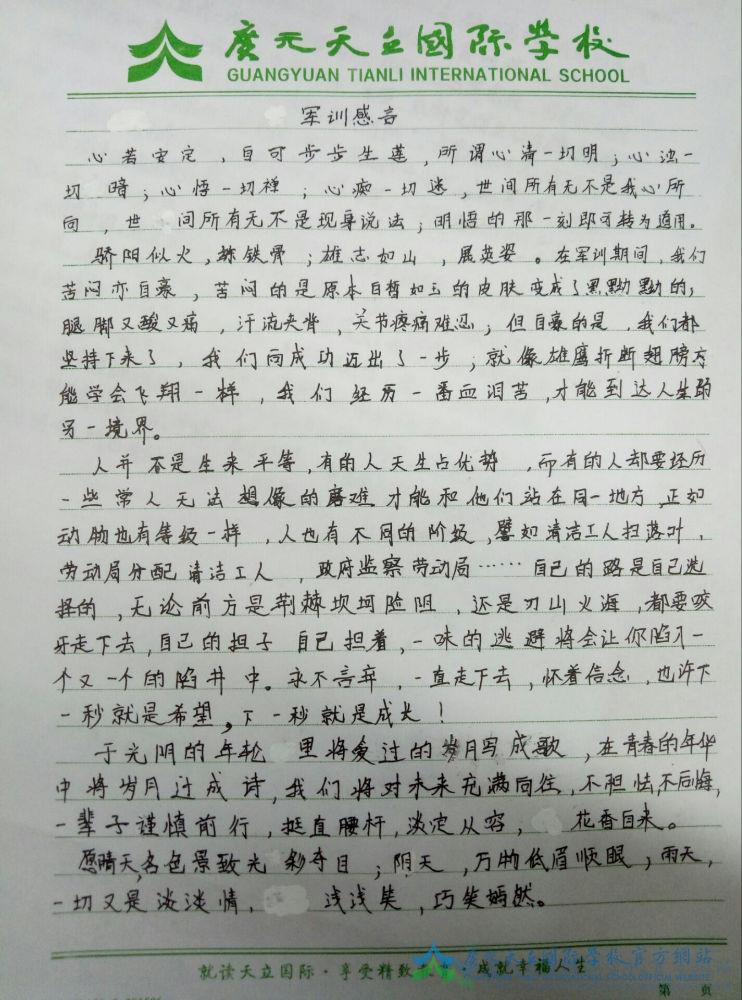 廣元天立國际学校
GUANGYUAN TIANLI INTERNATIONAL SCHOOL
军训感言
心若安定，自可步步生莲，所谓心清一切明；心浊一
切暗；心悟一切禅；心痴一切迷，世间所有无不是我心所
向，世间所有无不是现身说法；明悟的那一刻即可转为通用。
骄阳似火，炼铁骨；雄志如山，展英姿。在军训期间，我们
苦闷亦自豪，苦闷的是原本白皙如玉的皮肤变成了黑黝黝的；
腿脚又酸又痛，汗流夹背，关节疼痛难忍；但自豪的是，我们都
坚持下来了，我们向成功迈出了一步；就像雄鹰折断翅膀方
能学会飞翔一样，我们经历一番血泪苦，才能到达人生的
另一境界。
人并不是生来平等，有的人天生占优势，而有的人却要经历
一些常人无法想像的磨难才能和他们站在同一地方，正如
动物也有等级一样，人也有不同的阶级，譬如清洁工人扫落叶，
劳动局分配清洁工人，政府监察劳动局……自己的路是自己选
择的，无论前方是荆棘坝坷险阻，还是刀山火海，都要咬
牙走下去，自己的担子自己担着，一味的逃避将会让你陷入一
个又一个的陷井中。永不言弃，一直走下去，怀着信念，也许下
一秒就是希望，下一秒就是成长！
于光阴的年轮里将爱过的岁月写成歌，在青春的年华
中将岁月过成诗，我们将对未来充满向往，不胆怯，不后悔，
一辈子谨慎前行，挺直腰杆，淡定从容，花香自来。
愿晴天，名色景致光彩夺目；阴天，万物低眉顺眼；雨天，
一切又是淡淡情，浅浅笑，巧笑嫣然。
就读天立国际·享受精致 成就幸福人生
廣元天立國际学校官方網站
第 页